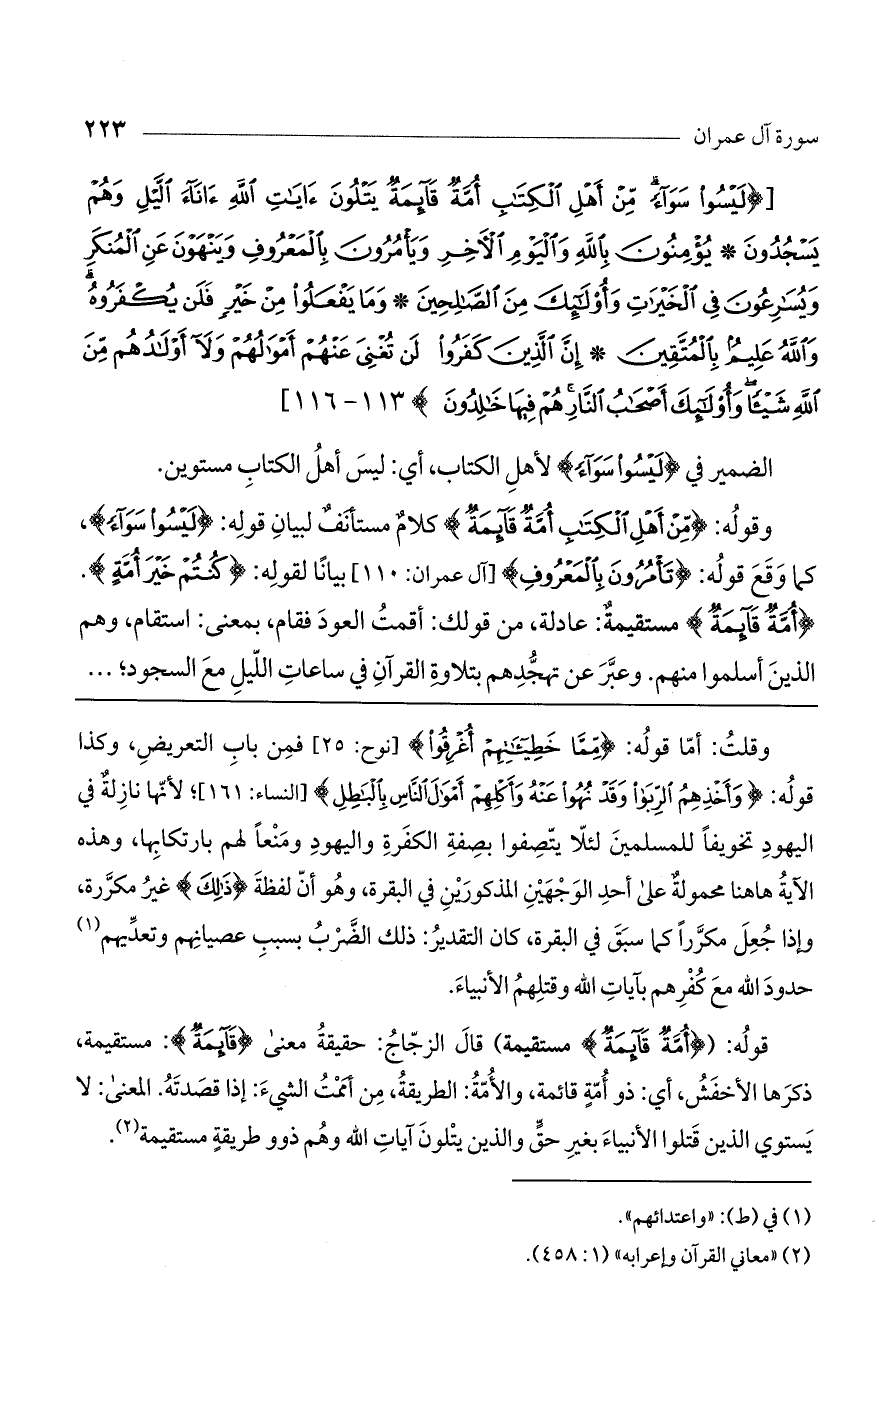 سورة آل عمران ٢٢٣
[﴿لَيْسُوا۟ سَوَآءً ۗ مِّنْ أَهْلِ ٱلْكِتَٰبِ أُمَّةٌ قَآئِمَةٌ يَتْلُونَ ءَايَٰتِ ٱللَّهِ ءَانَآءَ ٱلَّيْلِ وَهُمْ
يَسْجُدُونَ * يُؤْمِنُونَ بِٱللَّهِ وَٱلْيَوْمِ ٱلْأَخِرِ وَيَأْمُرُونَ بِٱلْمَعْرُوفِ وَيَنْهَوْنَ عَنِ ٱلْمُنكَرِ
وَيُسَٰرِعُونَ فِى ٱلْخَيْرَٰتِ وَأُو۟لَٰٓئِكَ مِنَ ٱلصَّٰلِحِينَ * وَمَا يَفْعَلُوا۟ مِنْ خَيْرٍ فَلَن يُكْفَرُوهُ ۗ
وَٱللَّهُ عَلِيمٌۢ بِٱلْمُتَّقِينَ * إِنَّ ٱلَّذِينَ كَفَرُوا۟ لَن تُغْنِىَ عَنْهُمْ أَمْوَٰلُهُمْ وَلَآ أَوْلَٰدُهُم مِّنَ
ٱللَّهِ شَيْـًٔا ۖ وَأُو۟لَٰٓئِكَ أَصْحَٰبُ ٱلنَّارِ ۚ هُمْ فِيهَا خَٰلِدُونَ ﴾ ١١٣ - ١١٦]
الضمير في ﴿لَيْسُوا۟ سَوَآءً﴾ لأهلِ الكتاب، أي: ليسَ أهلُ الكتابِ مستوين.
وقولُه: ﴿مِّنْ أَهْلِ ٱلْكِتَٰبِ أُمَّةٌ قَآئِمَةٌ﴾ كلامٌ مستأنَفٌ لبيانِ قولِه: ﴿لَيْسُوا۟ سَوَآءً﴾،
كما وَقَعَ قولُه: ﴿تَأْمُرُونَ بِٱلْمَعْرُوفِ﴾ [آل عمران: ١١٠] بيانًا لقولِه: ﴿كُنتُمْ خَيْرَ أُمَّةٍ﴾.
﴿أُمَّةٌ قَآئِمَةٌ﴾ مستقيمةٌ: عادلة، من قولك: أقمتُ العودَ فقام، بمعنى: استقام، وهم
الذينَ أسلموا منهم. وعبَّرَ عن تهجُّدهم بتلاوةِ القرآنِ في ساعاتِ اللّيلِ معَ السجود؛ ...
وقلتُ: أمّا قولُه: ﴿مِّمَّا خَطِيٓـَٰٔتِهِمْ أُغْرِقُوا۟﴾ [نوح: ٢٥] فمِن بابِ التعريضِ، وكذا
قولُه: ﴿وَأَخْذِهِمُ ٱلرِّبَوٰا۟ وَقَدْ نُهُوا۟ عَنْهُ وَأَكْلِهِمْ أَمْوَٰلَ ٱلنَّاسِ بِٱلْبَٰطِلِ﴾ [النساء: ١٦١]؛ لأنّها نازلةٌ في
اليهودِ تخويفاً للمسلمينَ لئلّا يتّصِفوا بصِفةِ الكفَرةِ واليهودِ ومَنْعاً لهم بارتكابِها، وهذه
الآيةُ هاهنا محمولةٌ علىٰ أحدِ الوَجْهَيْنِ المذكورَيْنِ في البقرة، وهُو أنّ لفظةَ ﴿ذَٰلِكَ﴾ غيرُ مكرَّرة،
وإذا جُعِلَ مكرَّراً كما سبَقَ في البقرة، كان التقديرُ: ذلك الضَّرْبُ بسببِ عصيانِهم وتعدِّيهم(١)
حدودَ الله معَ كُفْرِهم بآياتِ الله وقتلِهمُ الأنبياءَ.
قولُه: (﴿أُمَّةٌ قَآئِمَةٌ﴾ مستقيمة) قالَ الزجّاجُ: حقيقةُ معنىٰ ﴿قَآئِمَةٌ﴾: مستقيمة،
ذكرَها الأخفَشُ، أي: ذو أُمّةٍ قائمة، والأُمّةُ: الطريقةُ، مِن أمَمْتُ الشيءَ: إذا قصَدتَهُ. المعنىٰ: لا
يَستوي الذين قَتلوا الأنبياءَ بغيرِ حقٍّ والذين يتْلونَ آياتِ الله وهُم ذوو طريقةٍ مستقيمة(٢).
(١) في (ط): «واعتدائهم».
(٢) «معاني القرآن وإعرابه» (١: ٤٥٨).